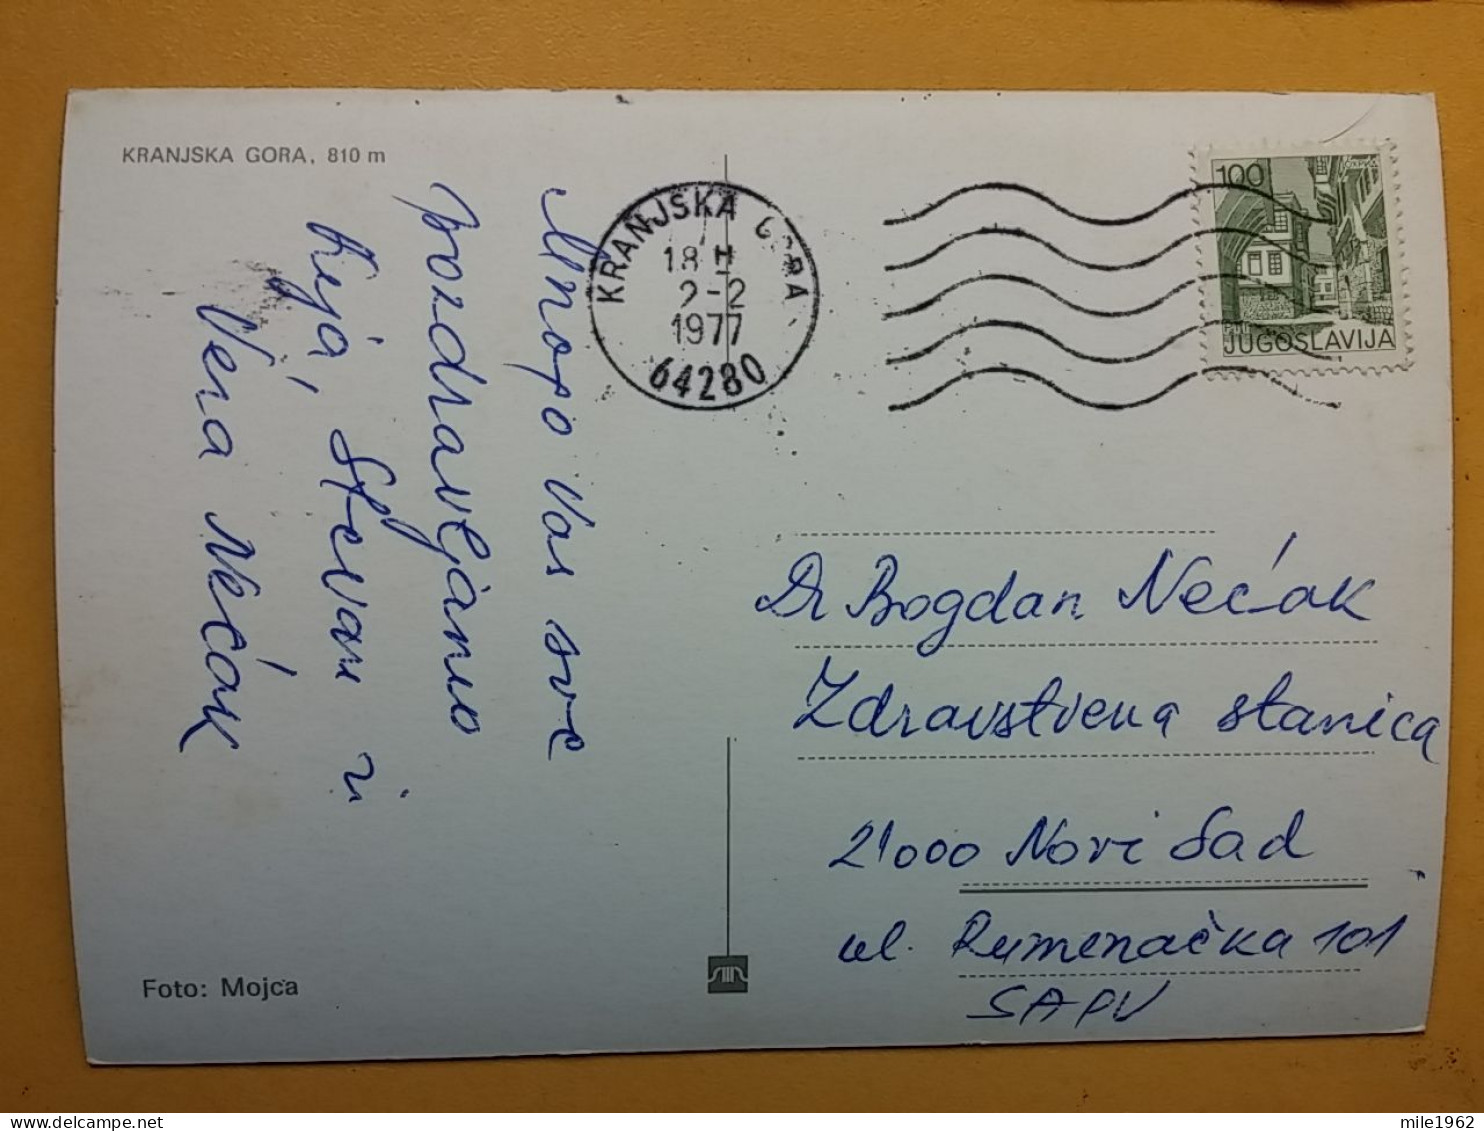 KRANJSKA GORA, 810 m
Mnogo Vas sve
pozdravljamo
Keja, Stevan i
Vera Nećak
Foto: Mojca
KRANJSKA GORA
18
2-2
1977
64280
100
JUGOSLAVIJA
Dr Bogdan Nećak
Zdravstvena stanica
21000 Novi Sad
ul. Rumenačka 101
SAPV
mile1962